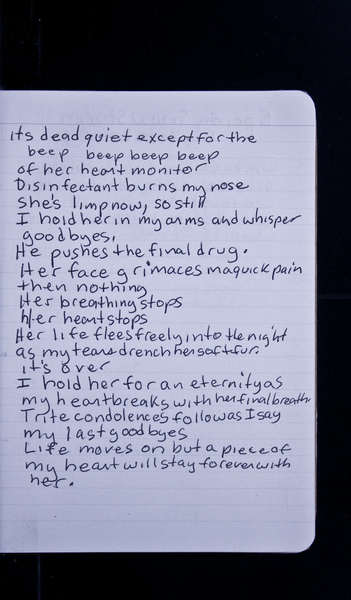 its dead quiet except for the
beep beep beep beep
of her heart monitor
Disinfectant burns my nose
she's limp now, so still
I hold her in my arms and whisper
goodbyes.
He pushes the final drug.
Her face grimaces in a quick pain
then nothing
Her breathing stops
Her heart stops
Her life flees freely into the night
as my tears drench her soft fur.
it's over
I hold her for an eternity as
my heart breaks with her final breath
Trite condolences follow as I say
my last goodbyes
Life moves on but a piece of
my heart will stay forever with
her.